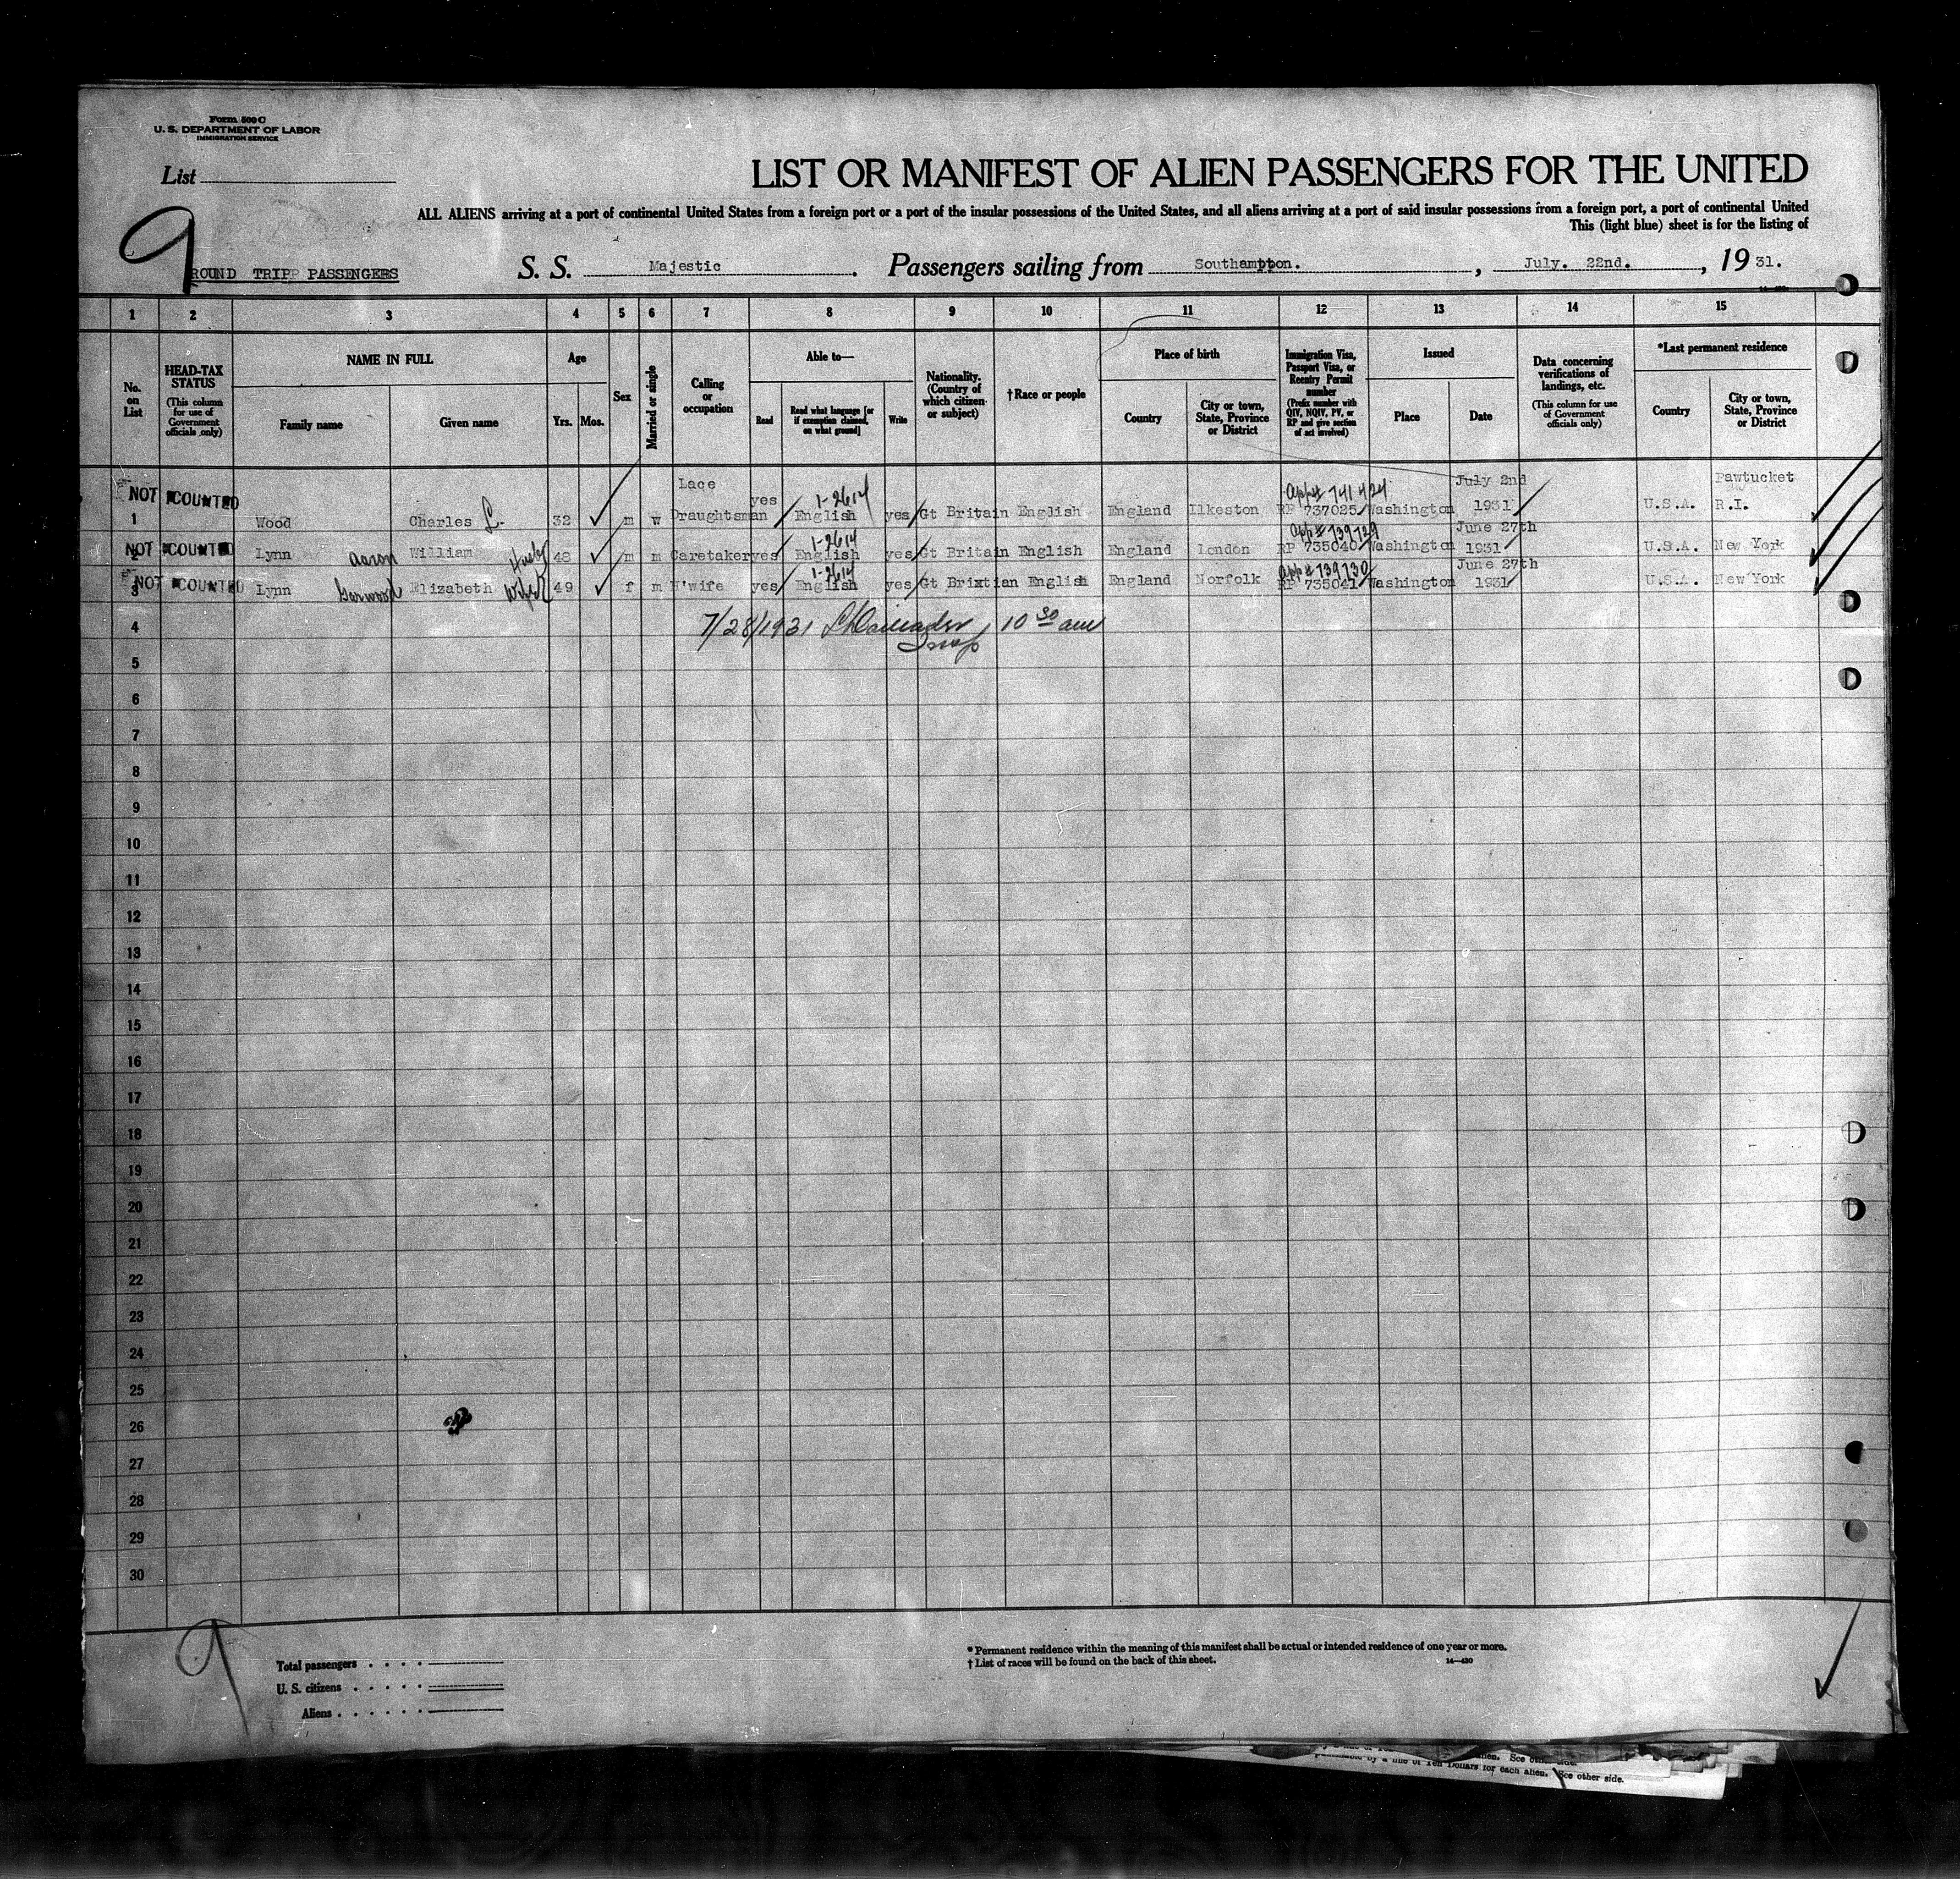 Form 500 C
U. S. DEPARTMENT OF LABOR
IMMIGRATION SERVICE
List
LIST OR MANIFEST OF ALIEN PASSENGERS FOR THE UNITED
ALL ALIENS arriving at a port of continental United States from a foreign port or a port of the insular possessions of the United States, and all aliens arriving at a port of said insular possessions from a foreign port, a port of continental United
This (light blue) sheet is for the listing of
9
ROUND TRIPP PASSENGERS S. S. Majestic. Passengers sailing from Southampton. , July. 22nd. , 19 31.
1 2 3 4 5 6 7 8 9 10 11 12 13 14 15
No. on List
HEAD-TAX STATUS (This column for use of Government officials only)
NAME IN FULL
Family name Given name
Age
Yrs. Mos.
Sex
Married or single
Calling or occupation
Able to—
Read Read what language [or if exemption claimed, on what ground] Write
Nationality. (Country of which citizen or subject)
†Race or people
Place of birth
Country City or town, State, Province or District
Immigration Visa, Passport Visa, or Reentry Permit number (Prefix number with QIV, NQIV, PV, or RP and give section of act involved)
Issued
Place Date
Data concerning verifications of landings, etc. (This column for use of Government officials only)
*Last permanent residence
Country City or town, State, Province or District
NOT COUNTED 1 Wood Charles L. 32 m w Lace Draughtsman yes 1-2614 English yes Gt Britain English England Ilkeston App# 741424 RP 737025 Washington July 2nd 1931 U.S.A. Pawtucket R.I.
NOT COUNTED 2 Lynn Aaron William Husb 48 m m Caretaker yes 1-2614 English yes Gt Britain English England London App# 739729 RP 735040 Washington June 27th 1931 U.S.A. New York
NOT COUNTED 3 Lynn Garwood Elizabeth Wife 49 f m H'wife yes 1-2614 English yes Gt Brixtian English England Norfolk App# 739730 RP 735041 Washington June 27th 1931 U.S.A. New York
4 7/28/1931 Insp 10 30 am
5
6
7
8
9
10
11
12
13
14
15
16
17
18
19
20
21
22
23
24
25
26
27
28
29
30
9
Total passengers
U. S. citizens
Aliens
* Permanent residence within the meaning of this manifest shall be actual or intended residence of one year or more.
† List of races will be found on the back of this sheet.
14—430
by a fine of Ten Dollars for each alien. See other side.